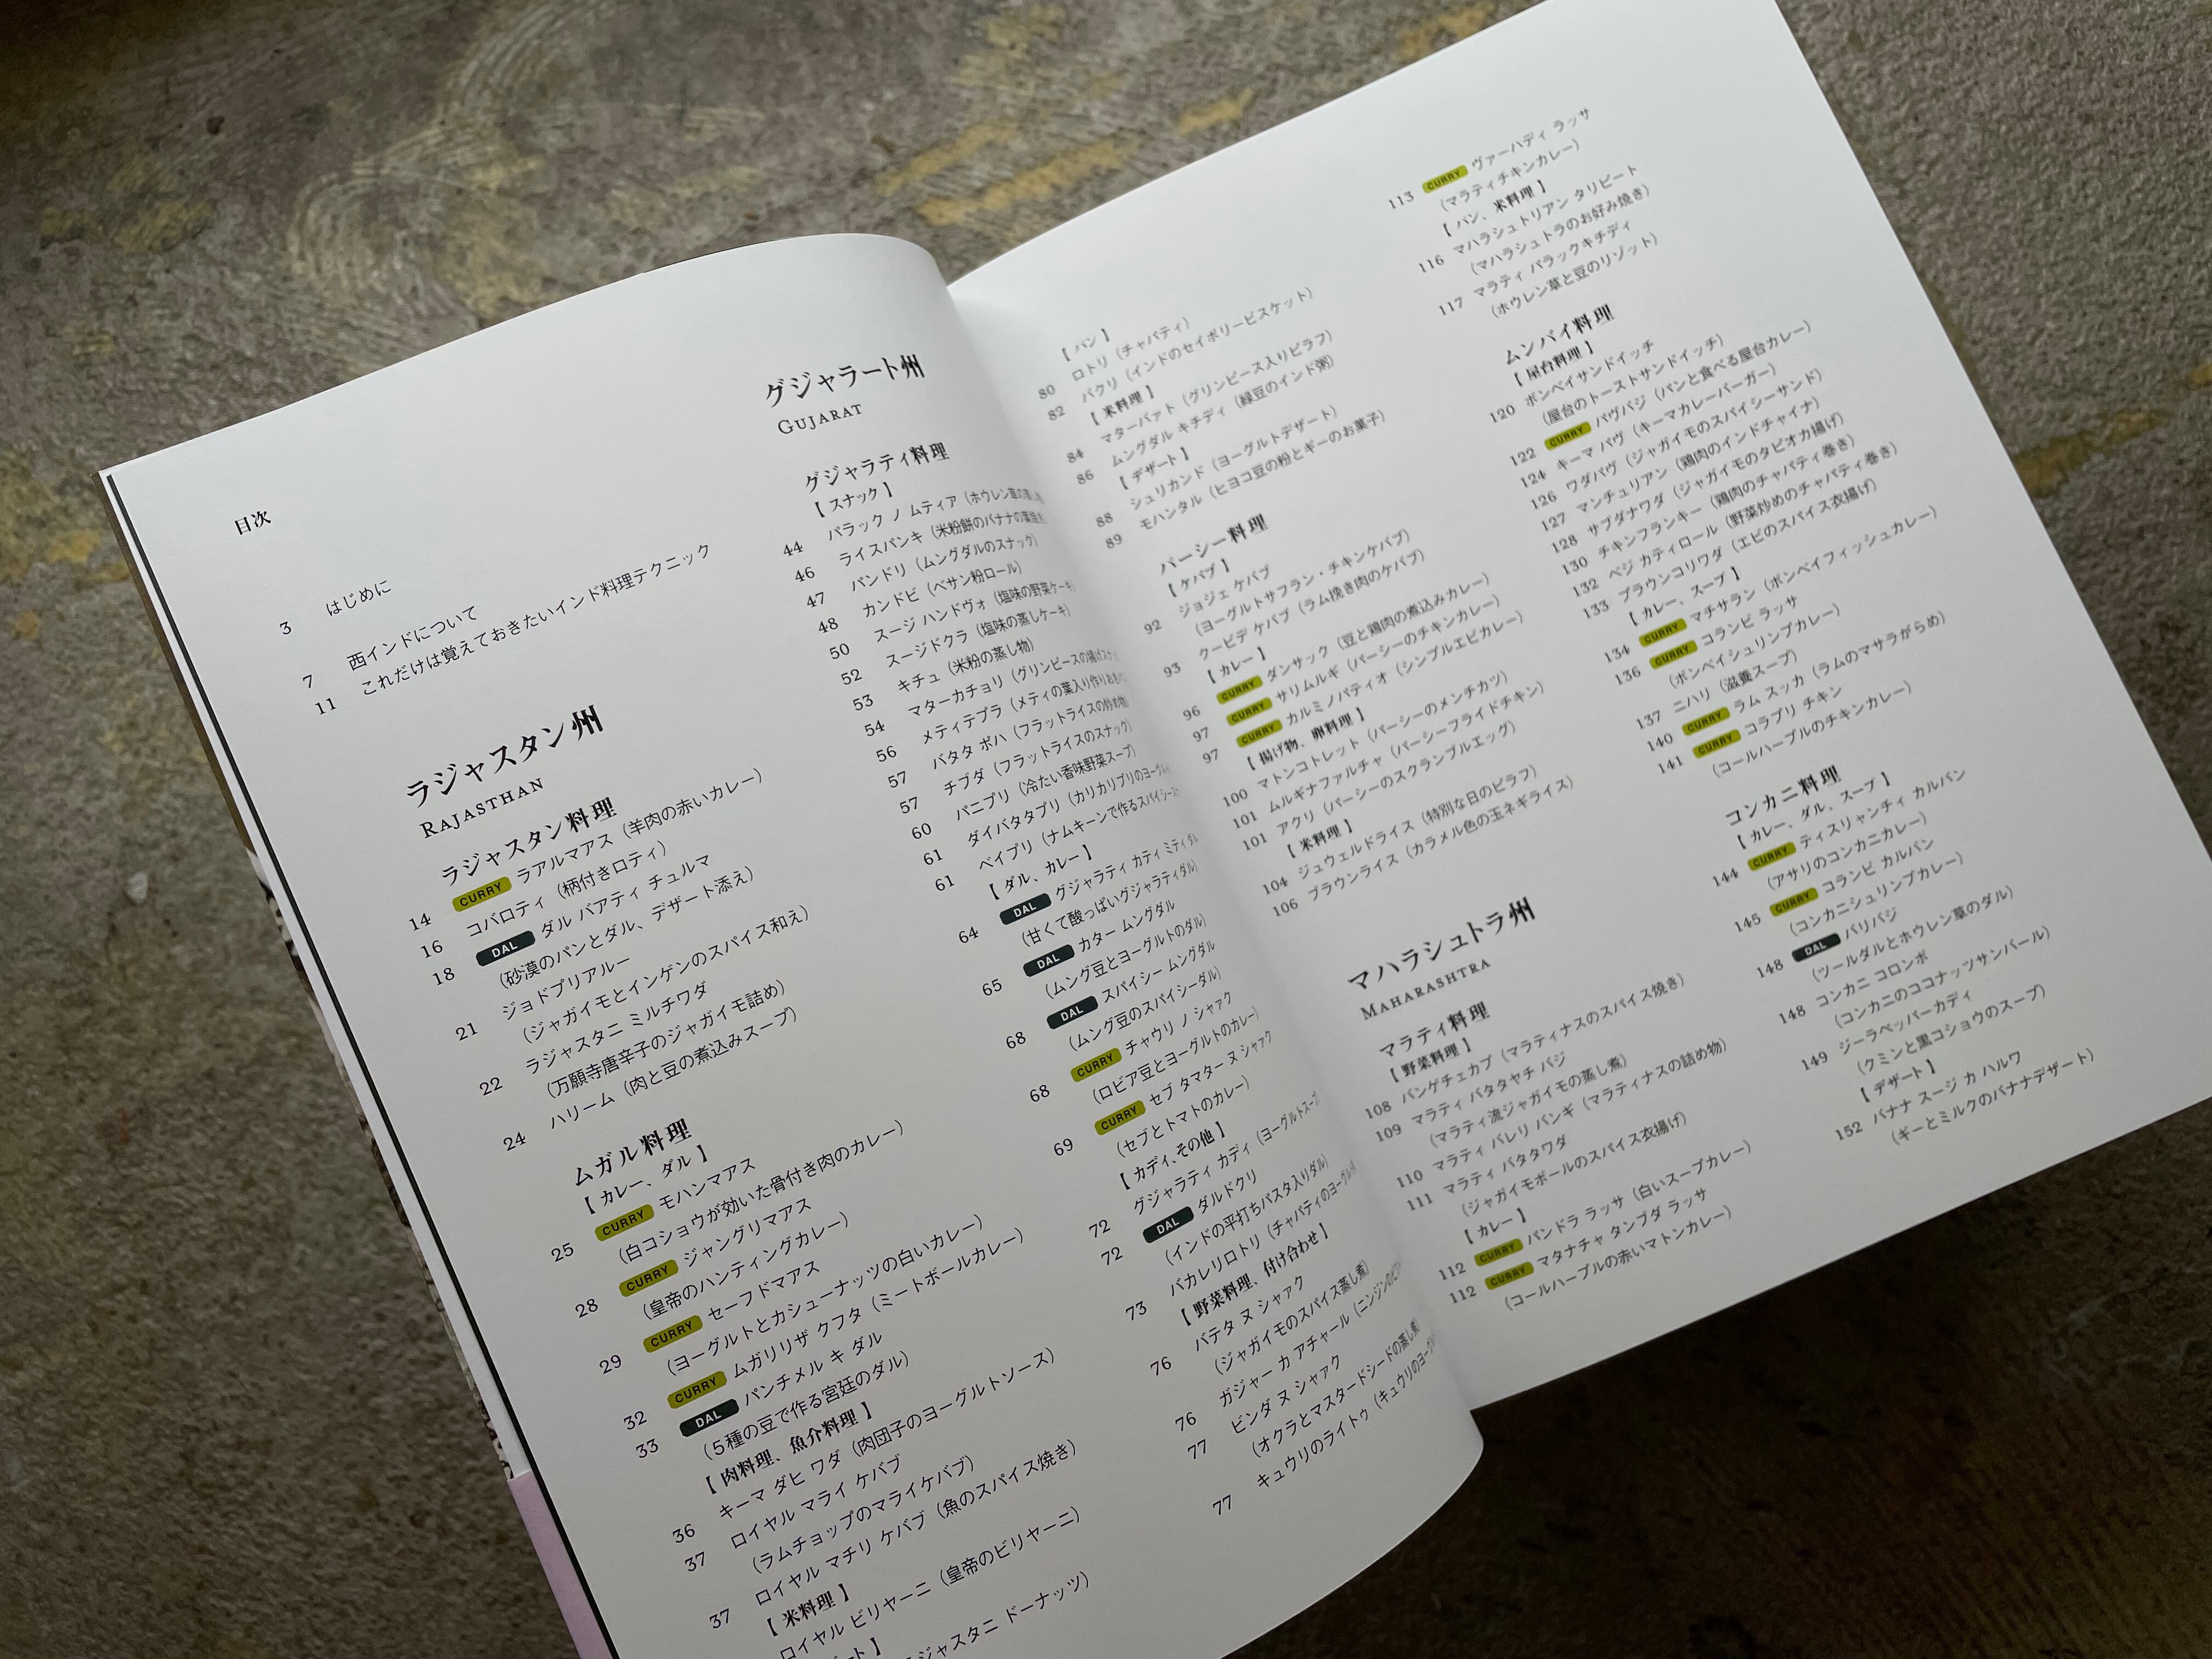 目次
3 はじめに
7 西インドについて
11 これだけは覚えておきたいインド料理テクニック
ラジャスタン州
RAJASTHAN
ラジャスタン料理
14 CURRY ラアルマアス（羊肉の赤いカレー）
16 コバロティ（柄付きロティ）
18 DAL ダル バアティ チュルマ
（砂漠のパンとダル、デザート添え）
21 ジョドプリアルー
（ジャガイモとインゲンのスパイス和え）
22 ラジャスタニ ミルチワダ
（万願寺唐辛子のジャガイモ詰め）
24 ハリーム（肉と豆の煮込みスープ）
ムガル料理
【 カレー、ダル 】
25 CURRY モハンマアス
（白コショウが効いた骨付き肉のカレー）
28 CURRY ジャングリマアス
（皇帝のハンティングカレー）
29 CURRY セーフドマアス
（ヨーグルトとカシューナッツの白いカレー）
32 CURRY ムガリリザ クフタ（ミートボールカレー）
33 DAL パンチメル キ ダル
（５種の豆で作る宮廷のダル）
【 肉料理、魚介料理 】
36 キーマ ダヒ ワダ（肉団子のヨーグルトソース）
37 ロイヤル マライ ケバブ
（ラムチョップのマライケバブ）
37 ロイヤル マチリ ケバブ（魚のスパイス焼き）
【 米料理 】
ロイヤル ビリヤーニ（皇帝のビリヤーニ）
ート 】
ジャスタニ ドーナッツ）
グジャラート州
GUJARAT
グジャラティ料理
【 スナック 】
44 パラック ノ ムティア（ホウレン草の蒸し
46 ライスパンキ（米粉餅のバナナの葉焼き
47 パンドリ（ムングダルのスナック）
48 カンドビ（ベサン粉ロール）
50 スージ ハンドヴォ（塩味の野菜ケーキ
52 スージドクラ（塩味の蒸しケーキ）
53 キチュ（米粉の蒸し物）
54 マターカチョリ（グリンピースの揚げスナ
56 メティテプラ（メティの葉入り作りおき
57 バタタ ポハ（フラットライスの炒め物
57 チブダ（フラットライスのスナック）
60 パニプリ（冷たい香味野菜スープ）
61 ダイバタタプリ（カリカリプリのヨーグル
61 ベイプリ（ナムキーンで作るスパイシース
【 ダル、カレー 】
64 DAL グジャラティ カティ ミティ ダル
（甘くて酸っぱいグジャラティダル）
65 DAL カター ムングダル
（ムング豆とヨーグルトのダル）
68 DAL スパイシー ムングダル
（ムング豆のスパイシーダル）
68 CURRY チャウリ ノ シャァク
（ロビア豆とヨーグルトのカレー）
69 CURRY セブ タマター ヌ シャァク
（セブとトマトのカレー）
【 カディ、その他 】
72 グジャラティ カディ（ヨーグルトスープ
72 DAL ダルドクリ
（インドの平打ちパスタ入りダル）
73 バカレリロトリ（チャパティのヨーグル
【 野菜料理、付け合わせ 】
76 バテタ ヌ シャァク
（ジャガイモのスパイス蒸し煮）
76 ガジャー カ アチャール（ニンジンの
77 ビンダ ヌ シャァク
（オクラとマスタードシードの蒸し煮）
77 キュウリのライトゥ（キュウリのヨーグル
【 パン 】
80 ロトリ（チャパティ）
82 バクリ（インドのセイボリービスケット）
【 米料理 】
84 マターバァト（グリンピース入りピラフ）
86 ムングダル キチディ（緑豆のインド粥）
【 デザート 】
88 シュリカンド（ヨーグルトデザート）
89 モハンタル（ヒヨコ豆の粉とギーのお菓子）
パーシー料理
【 ケバブ 】
92 ジョジェ ケバブ
（ヨーグルトサフラン・チキンケバブ）
93 クービデ ケバブ（ラム挽き肉のケバブ）
【 カレー 】
96 CURRY ダンサック（豆と鶏肉の煮込みカレー）
97 CURRY サリムルギ（パーシーのチキンカレー）
97 CURRY カルミノパティオ（シンプルエビカレー）
【 揚げ物、卵料理 】
100 マトンコトレット（パーシーのメンチカツ）
101 ムルギナファルチャ（パーシーフライドチキン）
101 アクリ（パーシーのスクランブルエッグ）
【 米料理 】
104 ジュウェルドライス（特別な日のピラフ）
106 ブラウンライス（カラメル色の玉ネギライス）
マハラシュトラ州
MAHARASHTRA
マラティ料理
【 野菜料理 】
108 バンゲチェカプ（マラティナスのスパイス焼き）
109 マラティ バタタヤチ バジ
（マラティ流ジャガイモの蒸し煮）
110 マラティ バレリ バンギ（マラティナスの詰め物）
111 マラティ バタタワダ
（ジャガイモボールのスパイス衣揚げ）
【 カレー 】
112 CURRY パンドラ ラッサ（白いスープカレー）
112 CURRY マタナチャ タンブダ ラッサ
（コールハープルの赤いマトンカレー）
113 CURRY ヴァーハディ ラッサ
（マラティチキンカレー）
【 パン、米料理 】
116 マハラシュトリアン タリピート
（マハラシュトラのお好み焼き）
117 マラティ パラックキチディ
（ホウレン草と豆のリゾット）
ムンバイ料理
【 屋台料理 】
120 ボンベイサンドイッチ
（屋台のトーストサンドイッチ）
122 CURRY パヴバジ（パンと食べる屋台カレー）
124 キーマ パヴ（キーマカレーバーガー）
126 ワダパヴ（ジャガイモのスパイシーサンド）
127 マンチュリアン（鶏肉のインドチャイナ）
128 サブダナワダ（ジャガイモのタピオカ揚げ）
130 チキンフランキー（鶏肉のチャパティ巻き）
132 ベジ カティロール（野菜炒めのチャパティ巻き）
133 プラウンコリワダ（エビのスパイス衣揚げ）
【 カレー、スープ 】
134 CURRY マチサラン（ボンベイフィッシュカレー）
136 CURRY コランビ ラッサ
（ボンベイシュリンプカレー）
137 ニハリ（滋養スープ）
140 CURRY ラム スッカ（ラムのマサラがらめ）
141 CURRY コラプリ チキン
（コールハープルのチキンカレー）
コンカニ料理
【 カレー、ダル、スープ 】
144 CURRY ティスリャンチィ カルバン
（アサリのコンカニカレー）
145 CURRY コランビ カルバン
（コンカニシュリンプカレー）
148 DAL バリバジ
（ツールダルとホウレン草のダル）
148 コンカニ コロンボ
（コンカニのココナッツサンバール）
149 ジーラペッパーカディ
（クミンと黒コショウのスープ）
【 デザート 】
152 バナナ スージ カ ハルワ
（ギーとミルクのバナナデザート）